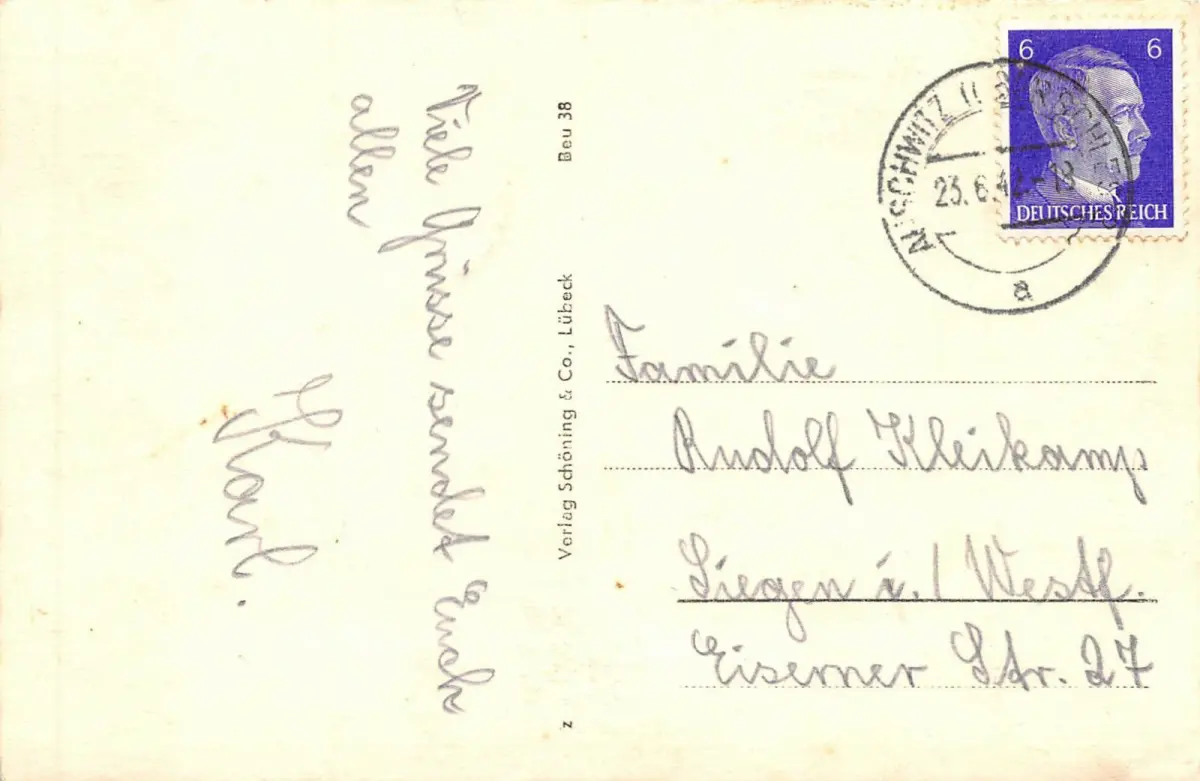 Viele Grüsse sendet Euch
allen
Karl.
Beu 38
Verlag Schöning & Co., Lübeck
z
6 6
DEUTSCHES REICH
AUSCHWITZ
23.6.42.-18
a
Familie
Rudolf Kleikamp
Siegen i./Westf.
Eiserner Str. 27